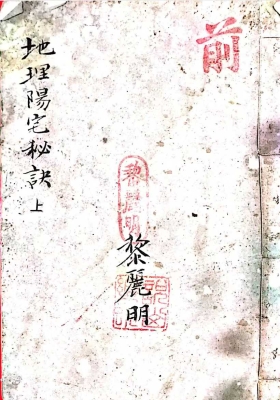 前
地理陽宅秘訣
上
黎麗明
黎麗明